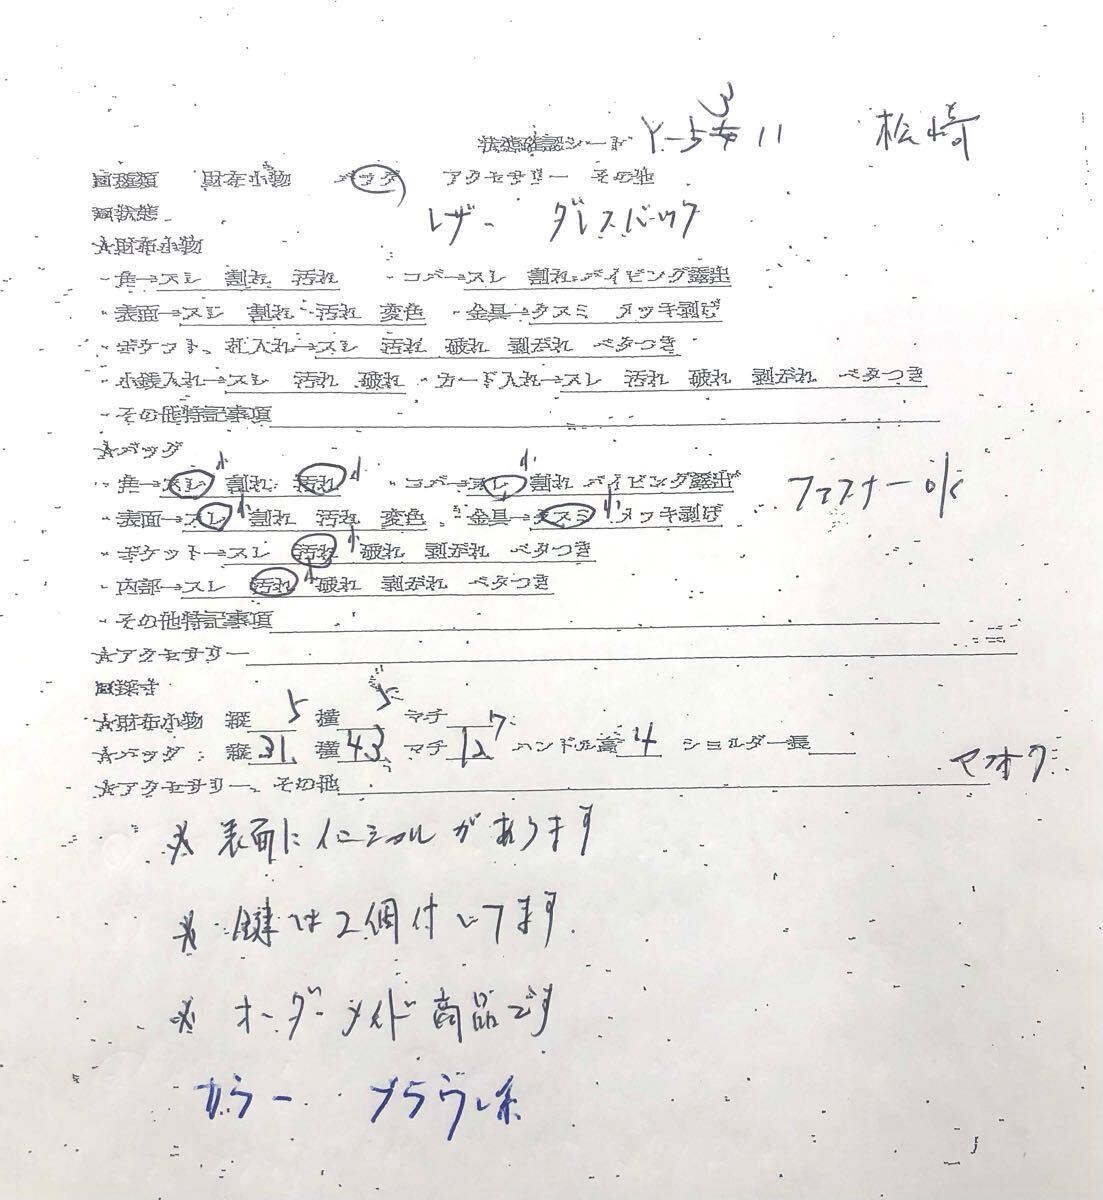 状態確認シート Y-5 3 11 松崎
■種類 財布小物 バッグ アクセサリー その他
■状態
レザー ダレスバッグ
★財布小物
・角→スレ 割れ 汚れ ・コバ→スレ 割れ パイピング露出
・表面→スレ 割れ 汚れ 変色 ・金具→クスミ メッキ剥げ
・ポケット、札入れ→スレ 汚れ 破れ 剥がれ ベタつき
・小銭入れ→スレ 汚れ 破れ ・カード入れ→スレ 汚れ 破れ 剥がれ ベタつき
・その他特記事項
★バッグ
・角→スレ 小 割れ 汚れ 小 ・コバ→スレ 小 割れ パイピング露出
ファスナー OK
・表面→スレ 小 割れ 汚れ 変色 ・金具→クスミ 小 メッキ剥げ
・ポケット→スレ 汚れ 小 破れ 剥がれ ベタつき
・内部→スレ 汚れ 小 破れ 剥がれ ベタつき
・その他特記事項
★アクセサリー
■採寸
★財布小物 縦 横 マチ
★バッグ 縦 31.5 横 43.5 マチ 12.7 ハンドル高 4 ショルダー長
★アクセサリー、その他
ヤフオク
※ 表面にイニシャルがあります
※ 鍵は2個付いてます
※ オーダーメイド商品です
カラー ブラウン系